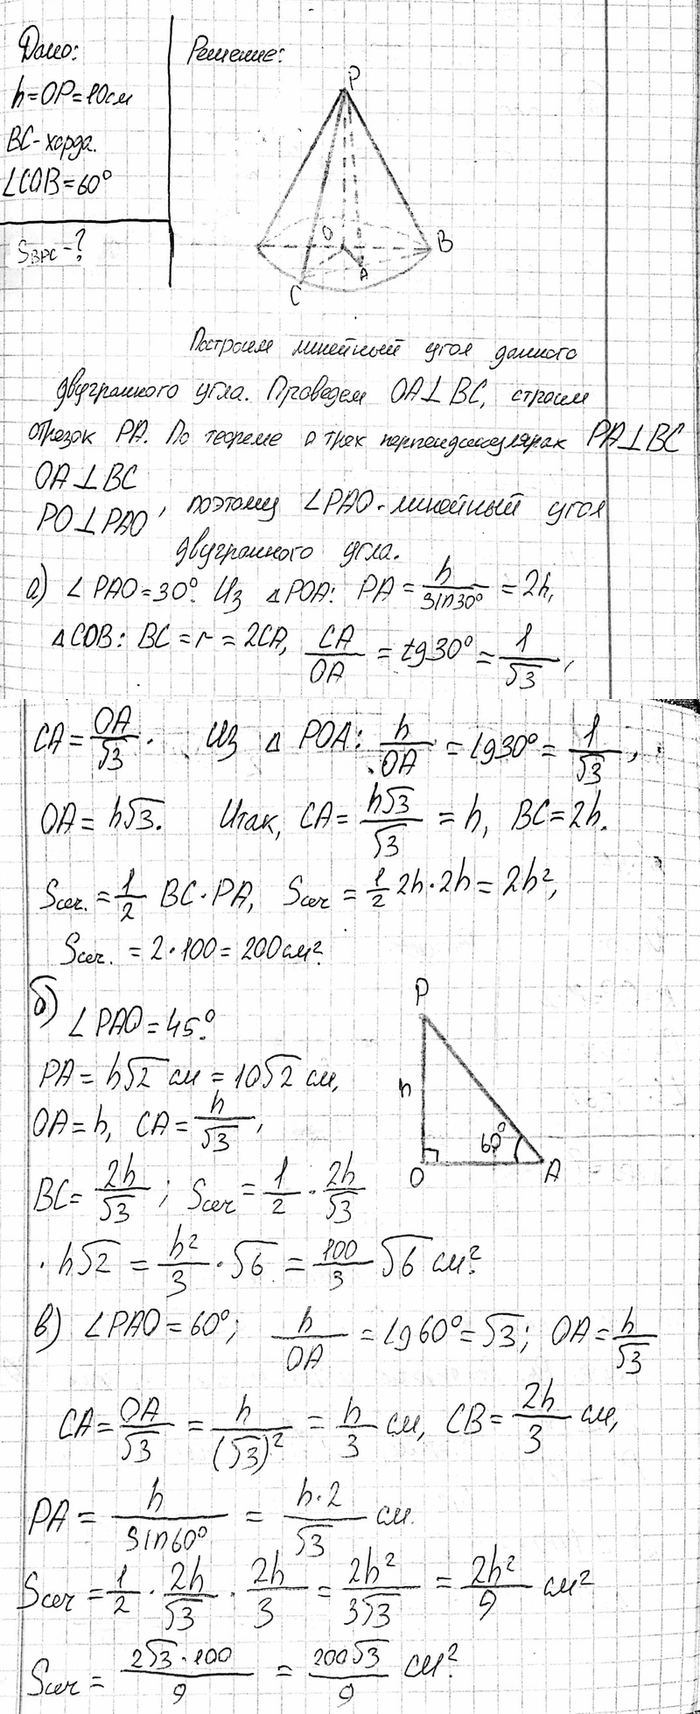 Дано:
h=OP=10см
BC-хорда.
∠COB=60°
S_BPC-?
Решение:
P
O
B
A
C
Построим линейный угол данного
двугранного угла. Проведем OA⊥BC, строим
отрезок PA. По теореме о трех перпендикулярах PA⊥BC
OA⊥BC
PO⊥PAO, поэтому ∠PAO-линейный угол
двугранного угла.
а) ∠PAO=30°. Из △POA: PA = h/sin30° = 2h,
△COB: BC = r = 2CA, CA/OA = tg30° = 1/√3,
CA = OA/√3. Из △POA: h/OA = tg30° = 1/√3,
OA = h√3. Итак, CA = h√3/√3 = h, BC=2h.
Sсеч. = 1/2 BC·PA, Sсеч = 1/2 2h·2h = 2h²,
Sсеч. = 2·100 = 200см².
б) ∠PAO=45°.
PA = h√2 см = 10√2 см,
OA = h, CA = h/√3,
BC = 2h/√3; Sсеч = 1/2 · 2h/√3
· h√2 = h²/3 · √6 = 100/3 √6 см².
P
h
60°
O
A
в) ∠PAO=60°; h/OA = tg60° = √3; OA = h/√3
CA = OA/√3 = h/(√3)² = h/3 см, CB = 2h/3 см,
PA = h/sin60° = h·2/√3 см.
Sсеч = 1/2 · 2h/√3 · 2h/3 = 2h²/3√3 = 2h²/9 см²
Sсеч = 2√3·100/9 = 200√3/9 см².